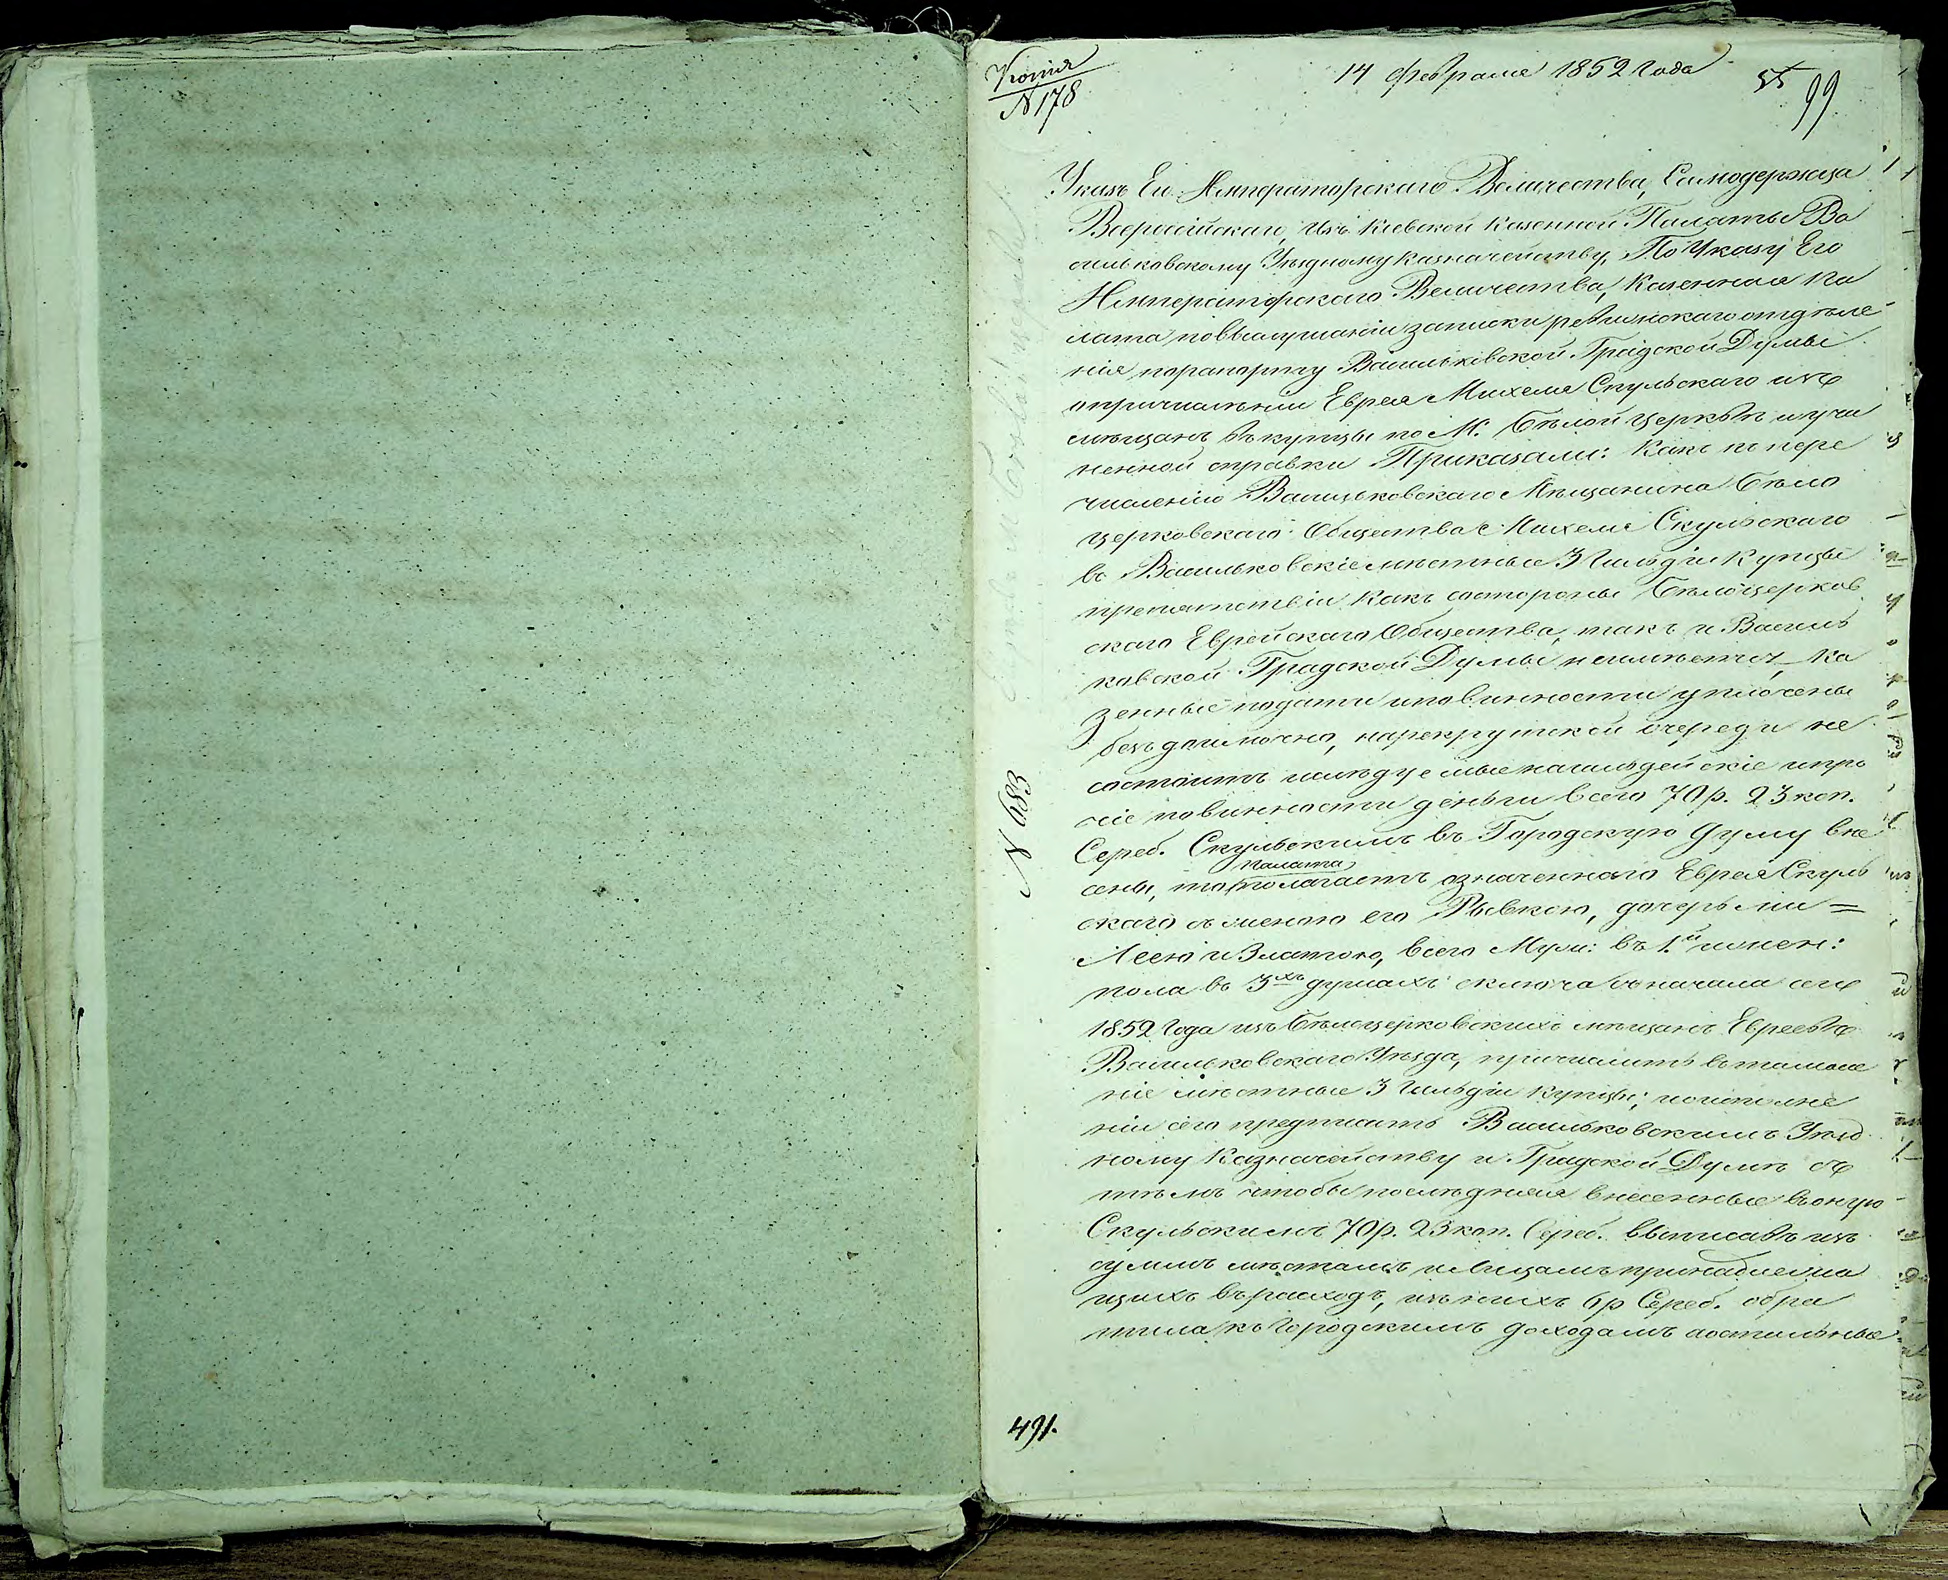 Копия
N 178
14 февраля 1852 Года
55 99
Указъ Его Императорскаго Величества, Самодержца
Всероссійскаго, изъ Кіевской Казенной Палаты Ва
сильковскому Уѣздному Казначейству. По Указу Его
Императорскаго Величества, Казенная Па
лата по выслушаніи записки ревизскаго отдѣле
нія по рапорту Васильковской Градской Думы
о причисленіи Еврея Михеля Скульскаго изъ
мѣщанъ въ купцы по М. Бѣлой Церквѣ и учи
ненной справки Приказали: Какъ къ пере
численію Васильковскаго Мѣщанина Бѣло
церковскаго Общества Михеля Скульскаго
въ Васильковскіе мѣстные 3 Гильдіи Купцы
препятствія, какъ со стороны Бѣлоцерков
скаго Еврейскаго Общества, такъ и Василь
ковской Градской Думы неимѣется, Ка
зенные подати и повинности уплочены
бездоимочно, на рекрутской очереди не
состоитъ и слѣдуемые на гильдейскіе и про
чіе повинности деньги всего 70 р. 23 коп.
Сереб. Скульскимъ въ Городскую Думу вне
сены, то Палата полагаетъ означеннаго Еврея Скуль
скаго съ женою его Рывкою, дочерьми =
Леею и Златою, всего Муж: въ 1.й и жен:
пола въ 3хъ душахъ исключа съ начала сего
1852 Года изъ Бѣлоцерковскихъ мѣщанъ Евреевъ
Васильковскаго Уѣзда, причислить въ тамош
ніе мѣстные 3 Гильдіи Купцы; о исполне
ніи сего предписать Васильковскимъ Уѣзд
ному Казначейству и Градской Думѣ съ
тѣмъ чтобы послѣдняя внесенные въ оную
Скульскимъ 70 р. 23 коп. Сереб. выписавъ изъ
суммъ мѣстамъ и лицамъ принадлежа
щихъ въ расходъ, изъ нихъ 6 р Сереб. обра
тила къ Городскимъ доходамъ а остальные
N 683
491.